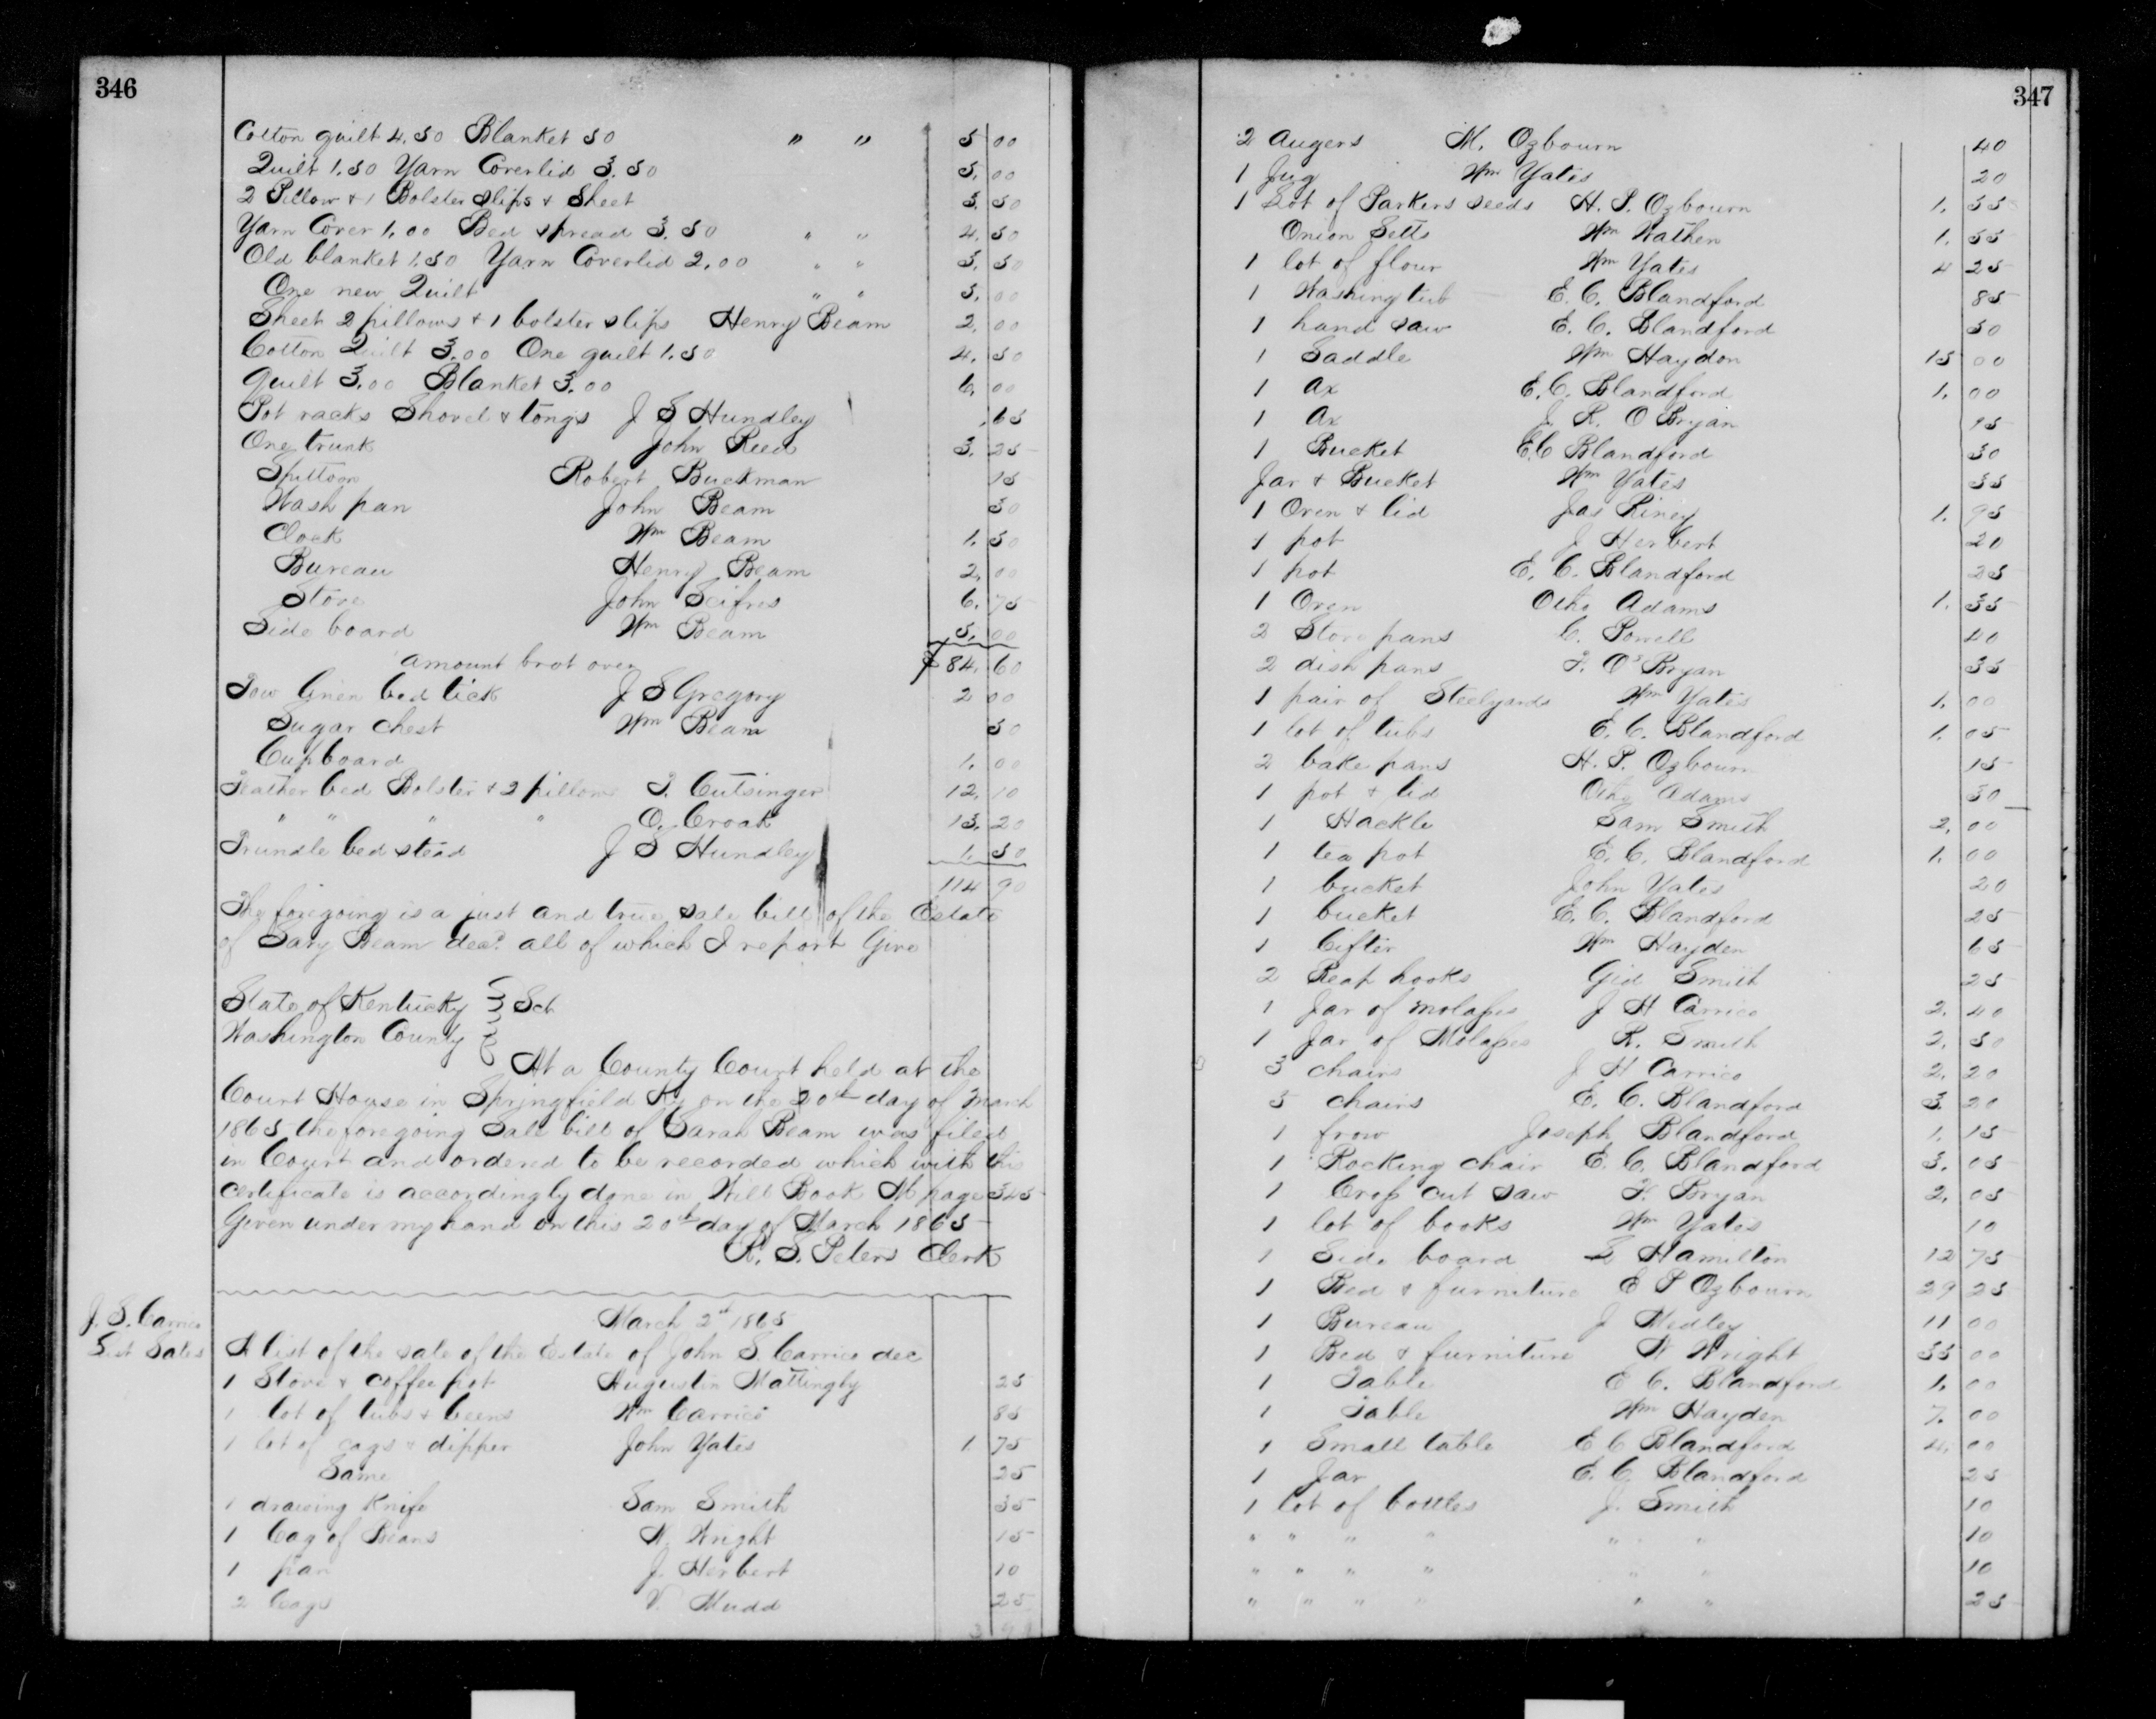 346
Cotton quilt 4.50 Blanket 50 " " 5 00
Quilt 1.50 Yarn Coverlid 3.50 5. 00
2 Pillow & 1 Bolster slips & Sheet 3. 50
Yarn Cover 1.00 Bed spread 3.50 " " 4. 50
Old blanket 1.50 Yarn Coverlid 2.00 " " 3. 50
One new Quilt " " 5. 00
Sheet 2 pillows & 1 bolster slips Henry Beam 2. 00
Cotton Quilt 3.00 One quilt 1.50 4. 50
Quilt 3.00 Blanket 3.00 6. 00
Pot racks Shovel & tongs J S Hundley .65
One trunk John Reed 3. 25
Spittoon Robert Buckman 15
Wash pan John Beam 50
Clock Wm Beam 1. 50
Bureau Henry Beam 2. 00
Stove John Scifres 6. 75
Side board Wm Beam 5. 00
amount brot over $84. 60
Tow linen bed tick J S Gregory 2 00
Sugar chest Wm Beam 50
Cupboard 1. 00
Feather bed Bolster & 2 pillows T. Cutsinger 12. 10
" " " " O. Croak 13. 20
Trundle bed stead J S Hundley 1. 50
114 90
The foregoing is a just and true sale bill of the Estate
of Sary Beam decd. all of which I report Give
State of Kentucky } Sct
Washington County }
At a County Court held at the
Court House in Springfield Ky on the 20th day of March
1865 the foregoing Sale bill of Sarah Beam was filed
in Court and ordered to be recorded which with this
certificate is accordingly done in Will Book M page 345
Given under my hand on this 20th day of March 1865
R. S. Peters Clerk
J. S. Carrico
List Sales
March 2d 1865
A list of the sale of the Estate of John S. Carrico dec
1 Stove & coffee pot Augustin Mattingly 25
1 lot of tubs & beens Wm Carrico 85
1 lot of cags & dipper John Yates 1. 75
Same 25
1 drawing Knife Sam Smith 35
1 Cag of Beans N. Wright 15
1 pan J. Herbert 10
2 Cags V. Mudd 25
347
2 Augers M. Ozbourn 40
1 Jug Wm Yates 20
1 Lot of Parkers seeds H. P. Ozbourn 1. 55
Onion Setts Wm Wathen 1. 55
1 lot of flour Wm Yates 4 25
1 Washing tub E. C. Blandford 85
1 hand saw E. C. Blandford 50
1 Saddle Wm Haydon 15 00
1 Ax E. C. Blandford 1. 00
1 Ax J. R. O Bryan 95
1 Bucket E.C Blandford 30
Jar & Bucket Wm Yates 55
1 Oven & lid Jas Riney 1. 95
1 pot J Herbert 20
1 pot E. C. Blandford 25
1 Oven Otho Adams 1. 35
2 Stove pans C. Powell 40
2 dish pans F. O'Bryan 35
1 pair of Steelyards Wm Yates 1. 00
1 lot of tubs E. C. Blandford 1. 05
2 bake pans H. P. Ozbourn 15
1 pot & lid Otho Adams 50
1 Hackle Sam Smith 2. 00
1 tea pot E. C. Blandford 1. 00
1 bucket John Yates 20
1 bucket E. C. Blandford 25
1 Cifter Wm Hayden 65
2 Reap hooks Gid Smith 25
1 Jar of molasses J H Carrico 2. 40
1 Jar of Molasses R. Smith 2. 50
3 chairs J H Carrico 2. 20
5 chairs E. C. Blandford 3. 20
1 frow Joseph Blandford 1. 15
1 Rocking chair E. C. Blandford 3. 05
1 Cross cut saw F. Bryan 2. 05
1 lot of books Wm Yates 10
1 Side board S Hamilton 12 75
1 Bed & furniture E P Ozbourn 29 25
1 Bureau J Medley 11 00
1 Bed & furniture N Wright 35 00
1 Table E C. Blandford 1. 00
1 Table Wm Hayden 7. 00
1 Small table E C Blandford 4. 00
1 Jar E. C. Blandford 25
1 lot of bottles J. Smith 10
" " " " " " 10
" " " " " " 10
" " " " " " 25